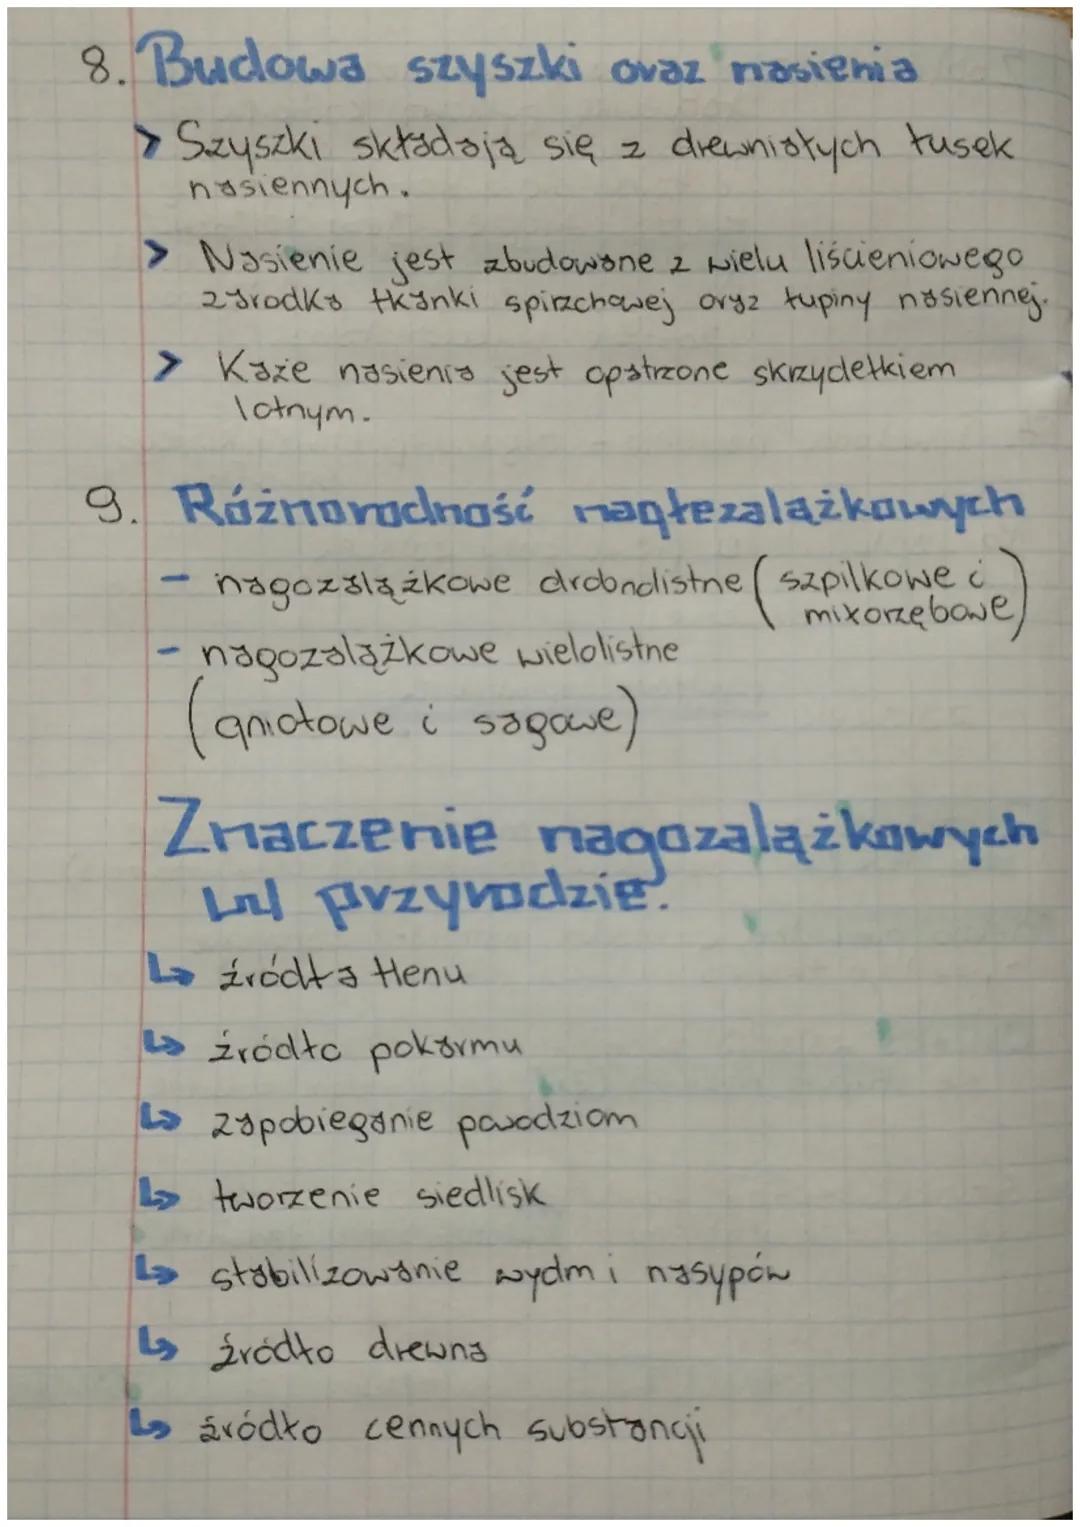 8. Budowa szyszki oraz nasienia
> Szyszki składają się z drewniatych łusek
nasiennych.
> Nasienie jest zbudowane z wielu liścieniowego
zarodka tkanki spirzchowej oraz łupiny nasiennej.
> Każe nasienia jest opatrzone skrzydełkiem
lotnym.
9. Różnorodność nagłezalążkowych
- nagozalążkowe drobnolistne (szpilkowe i
miłorzębowe)
- nagozalążkowe wielolistne
(gniotowe i sagowe)
Znaczenie nagozalążkowych
w przyrodzie.
↳ źródła tlenu
↳ źródło pokarmu
↳ zapobieganie powodziom
↳ tworzenie siedlisk
↳ stabilizowanie wydm i nasypów
↳ źródło drewna
↳ źródło cennych substancji